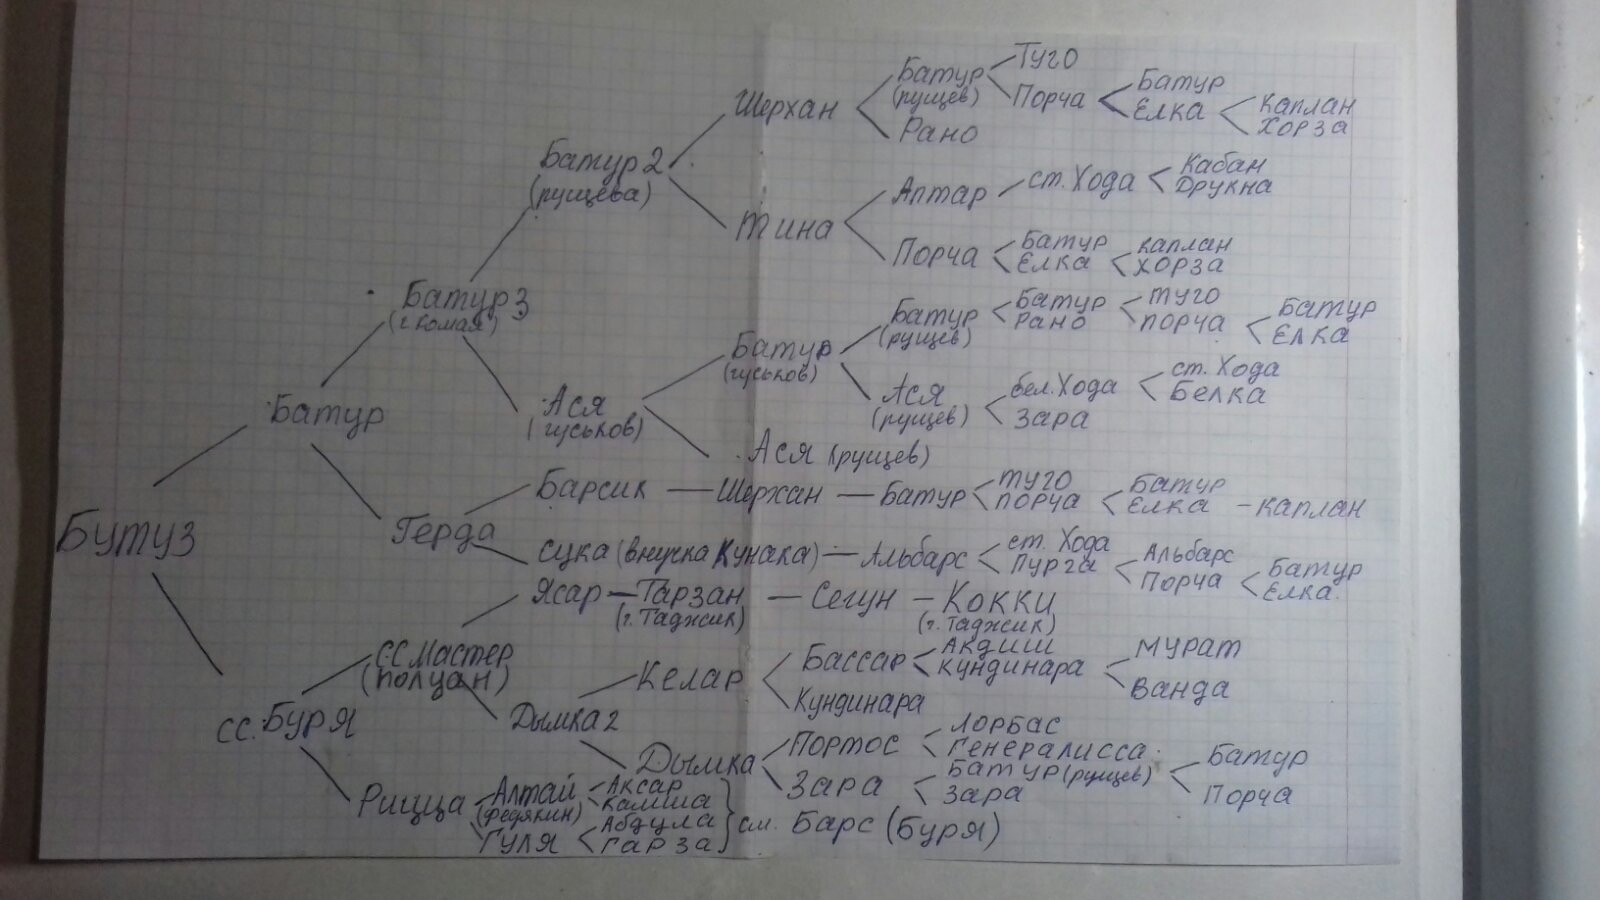 Туго
Батур
(рущев)
Порча
Батур
Елка
Каплан
Хорза
Шерхан
Рано
Батур 2
(рущева)
Аптар
ст. Хода
Кабан
Друкна
Тина
Порча
Батур
Елка
Каплан
Хорза
Батур 3
(г. Комая)
Батур
(рущев)
Батур
Рано
Туго
Порча
Батур
Елка
Батур
(гуськов)
Ася
(гуськов)
Ася
(рущев)
бел. Хода
Зара
ст. Хода
Белка
Батур
Ася (рущев)
Барсик — Шерхан — Батур
Туго
Порча
Батур
Елка - Каплан
Бутуз
Герда
сцка (внучка Кунака) — Альбарс
ст. Хода
Пурга
Альбарс
Порча
Батур
Елка
Ясар — Тарзан — Сегун — Кокки
(г. Таджик)
(г. Таджик)
СС Мастер
(Полцан)
Келар
Бассар
Акдиш
Кундинара
Мурат
Ванда
Кундинара
СС. Буря
Дымка 2
Дымка
Портос
Лорбас
Генералисса
Зара
Батур (рущев)
Зара
Батур
Порча
Рицца
Алтай
(Федякин)
Аксар
Камша
Гуля
Абдула
Гарза
см. Барс (Буря)